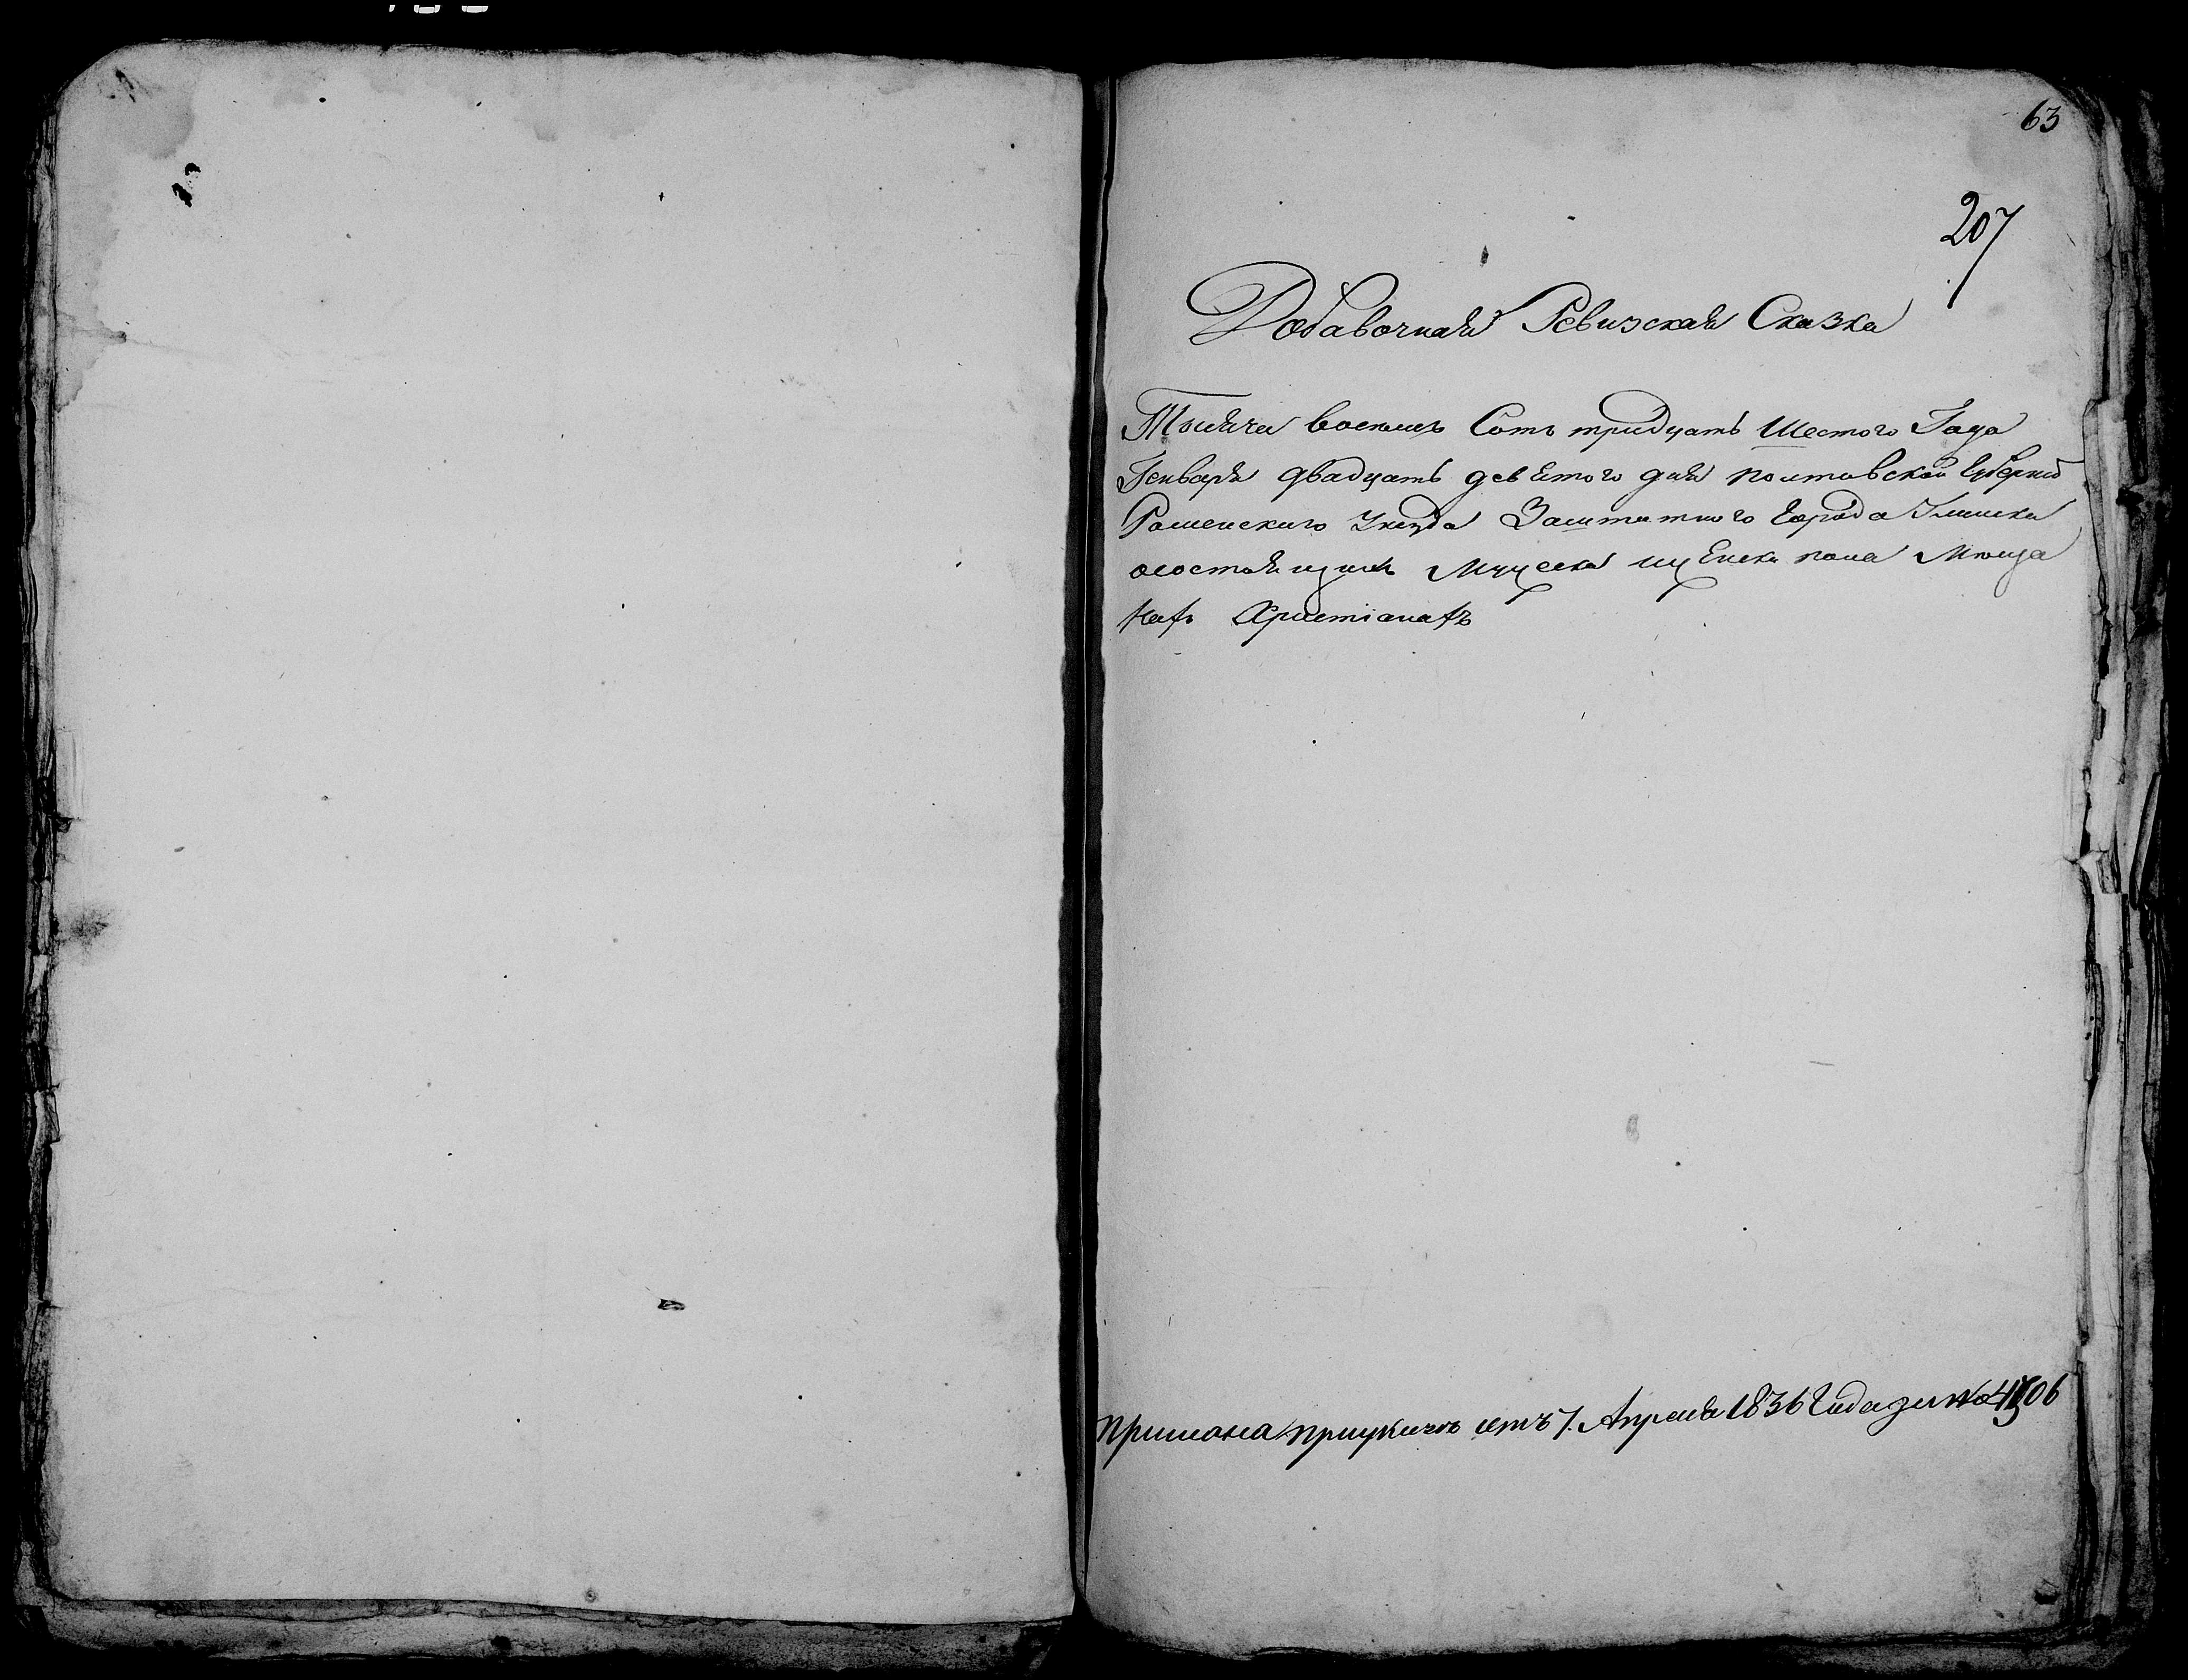 63
207
Добавочная Ревизская Сказка
Тысяча восемь Сотъ тридцать Шестого Года
Генваря двадцать деветого дня полтавской Губернiи
Роменского уезда Заштатного Города Глинска
осостоящихъ Мужеска иженска пола Мѣща
нахъ Христiанахъ
принята приуказѣ отъ 7. Апреля 1836 Года за №